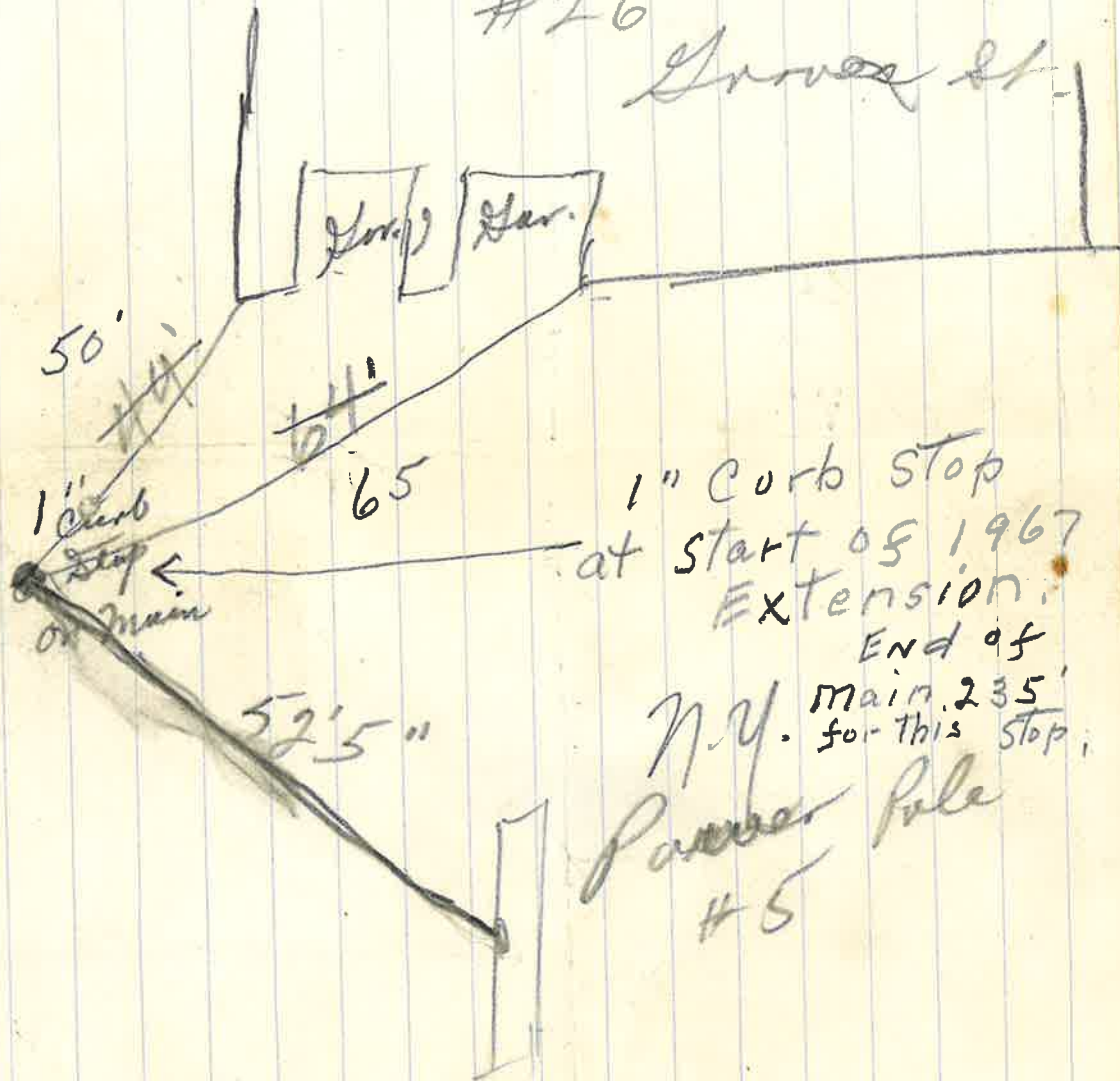 #26
Grove St.
Gar.
Gar.
50'
44'
64'
65
1" Curb
Stop
on Main
1" Curb Stop
at Start of 1967
Extension.
End of
Main 235'
for this Stop.
52'5"
N.Y.
Power Pole
#5